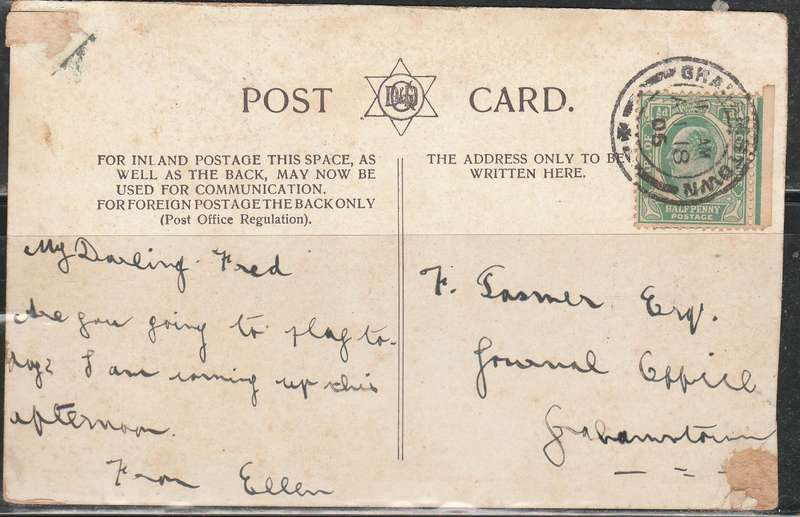 POST CARD.
FOR INLAND POSTAGE THIS SPACE, AS
WELL AS THE BACK, MAY NOW BE
USED FOR COMMUNICATION.
FOR FOREIGN POSTAGE THE BACK ONLY
(Post Office Regulation).
THE ADDRESS ONLY TO BE
WRITTEN HERE.
AM
18
06
HALFPENNY
POSTAGE
My Darling Fred
Are you going to play to-
day? I am coming up this
afternoon.
From Ellen
F. Esqr.
Journal Office
Grahamstown